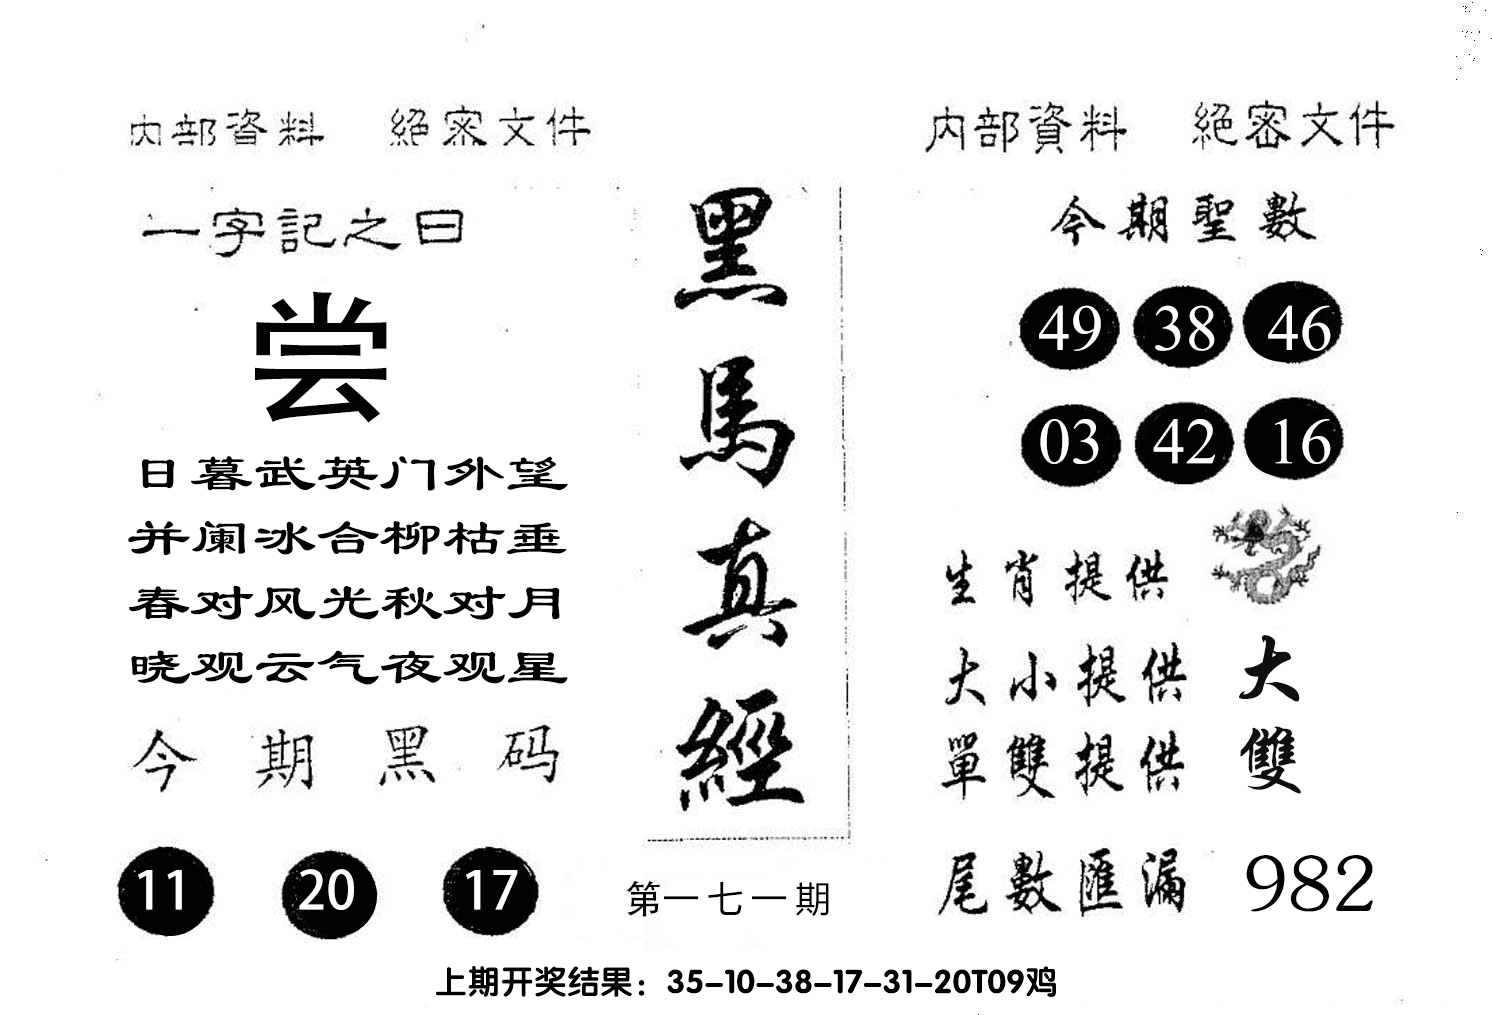 内部資料 絕密文件
一字記之曰
尝
日暮武英门外望
并阑冰合柳枯垂
春对风光秋对月
晓观云气夜观星
今期黑码
11 20 17
黑馬真經
第一七一期
内部資料 絕密文件
今期聖數
49 38 46
03 42 16
生肖提供
大小提供 大
單雙提供 雙
尾數匯漏 982
上期开奖结果：35-10-38-17-31-20T09鸡